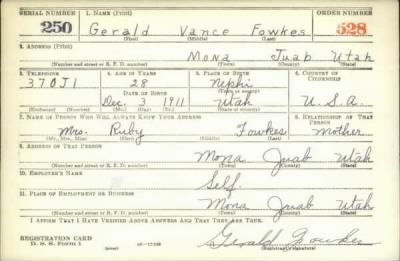 SERIAL NUMBER 1. NAME (Print) ORDER NUMBER
250 Gerald Vance Fowkes 528
(First) (Middle) (Last)
2. ADDRESS (Print)
Mona Juab Utah
(Number and street or R. F. D. number) (Town) (County) (State)
3. TELEPHONE 4. AGE IN YEARS 5. PLACE OF BIRTH 6. COUNTRY OF CITIZENSHIP
370J1 28 Nephi
DATE OF BIRTH (Town or county)
Dec. 3 1911 Utah U.S.A.
(Exchange) (Number) (Mo.) (Day) (Yr.) (State or country)
7. NAME OF PERSON WHO WILL ALWAYS KNOW YOUR ADDRESS 8. RELATIONSHIP OF THAT PERSON
Mrs. Ruby Fowkes Mother
(Mr., Mrs., Miss) (First) (Middle) (Last)
9. ADDRESS OF THAT PERSON
Mona Juab Utah
(Number and street or R. F. D. number) (Town) (County) (State)
10. EMPLOYER'S NAME
Self.
11. PLACE OF EMPLOYMENT OR BUSINESS
Mona Juab Utah
(Number and street or R. F. D. number) (Town) (County) (State)
I AFFIRM THAT I HAVE VERIFIED ABOVE ANSWERS AND THAT THEY ARE TRUE.
REGISTRATION CARD
D. S. S. FORM 1 Gerald Fowkes
(Registrant's signature)